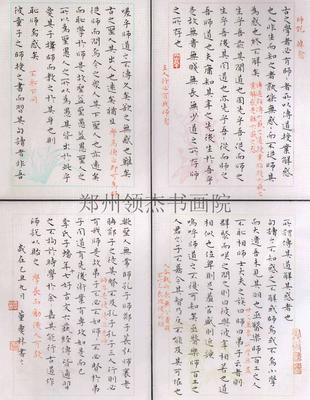 師說 韓愈
古之學者必有師者所以傳道受業解惑
也人非生而知之者孰能無惑而不從師其
為惑也終不解矣
生乎吾前其聞道也固先乎吾從而師之
生乎吾後其聞道也亦先乎吾從而師之
吾師道也夫庸知其年之先後生於吾乎
是故無貴無賤無長無少道之所存師
之所存也
嗟乎師道之不傳也久矣欲人之無惑也難矣
古之聖人其出人也遠矣猶且
從師而問焉今之眾人其下聖人也亦遠矣
而恥學於師是故聖益聖愚益愚聖人之
所以為聖愚人之所以為愚其皆出於此乎
愛其子擇師而教之於其身也則
恥師焉惑矣
彼童子之師授之書而習其句讀者非吾
郑州领杰书画院
所謂傳其道解其惑者也
句讀之不知惑之不解或師焉或不焉小學
而大遺吾未見其明也巫醫樂師百工之人
不恥相師士大夫之族曰師曰弟子云者則
群聚而笑之問之則曰彼與彼年相若也道
相似也位卑則足羞官盛則近諛
嗚呼師道之不復可知矣巫醫樂師百工之
人君子不齒今其智乃反不能及其可怪也
歟聖人無常師孔子師郯子萇弘師襄老聃
郯子之徒其賢不及孔子孔子曰三人行則必
有我師是故弟子不必不如師師不必賢於弟
子聞道有先後術業有專攻如是而已
李氏子蟠年十七好古文六藝經傳皆通習
之不拘於時學於余余嘉其能行古道作
師說以貽之
歲在己丑九月